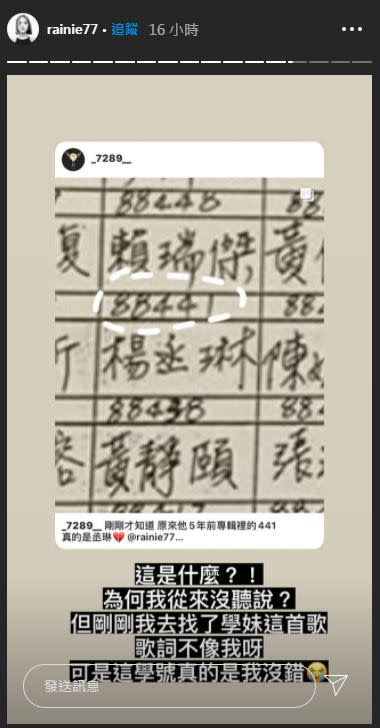 rainie77 • 追蹤 16 小時
_7289__
88448 88
夏 賴瑞傑, 黃
88441 884
楊丞琳 陳
88438 884
容 黃靜頤 張
_7289__ 剛剛才知道 原來他5年前專輯裡的441
真的是丞琳💔 @rainie77...
這是什麼？！
為何我從來沒聽說？
但剛剛我去找了學妹這首歌
歌詞不像我呀
可是這學號真的是我沒錯😭
發送訊息